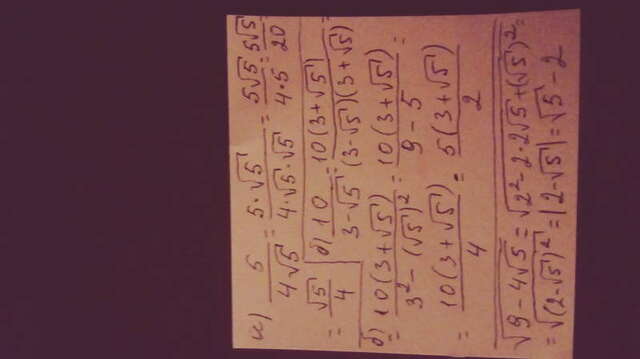 а) 5/(4√5) = (5·√5)/(4·√5·√5) = (5√5)/(4·5) = (5√5)/20
= √5/4
б) 10/(3-√5) = (10(3+√5))/((3-√5)(3+√5)) =
б) = (10(3+√5))/(3²-(√5)²) = (10(3+√5))/(9-5) =
= (10(3+√5))/4 = (5(3+√5))/2
√(9-4√5) = √(2²-2·2√5+(√5)²) =
= √((2-√5)²) = |2-√5| = √5-2